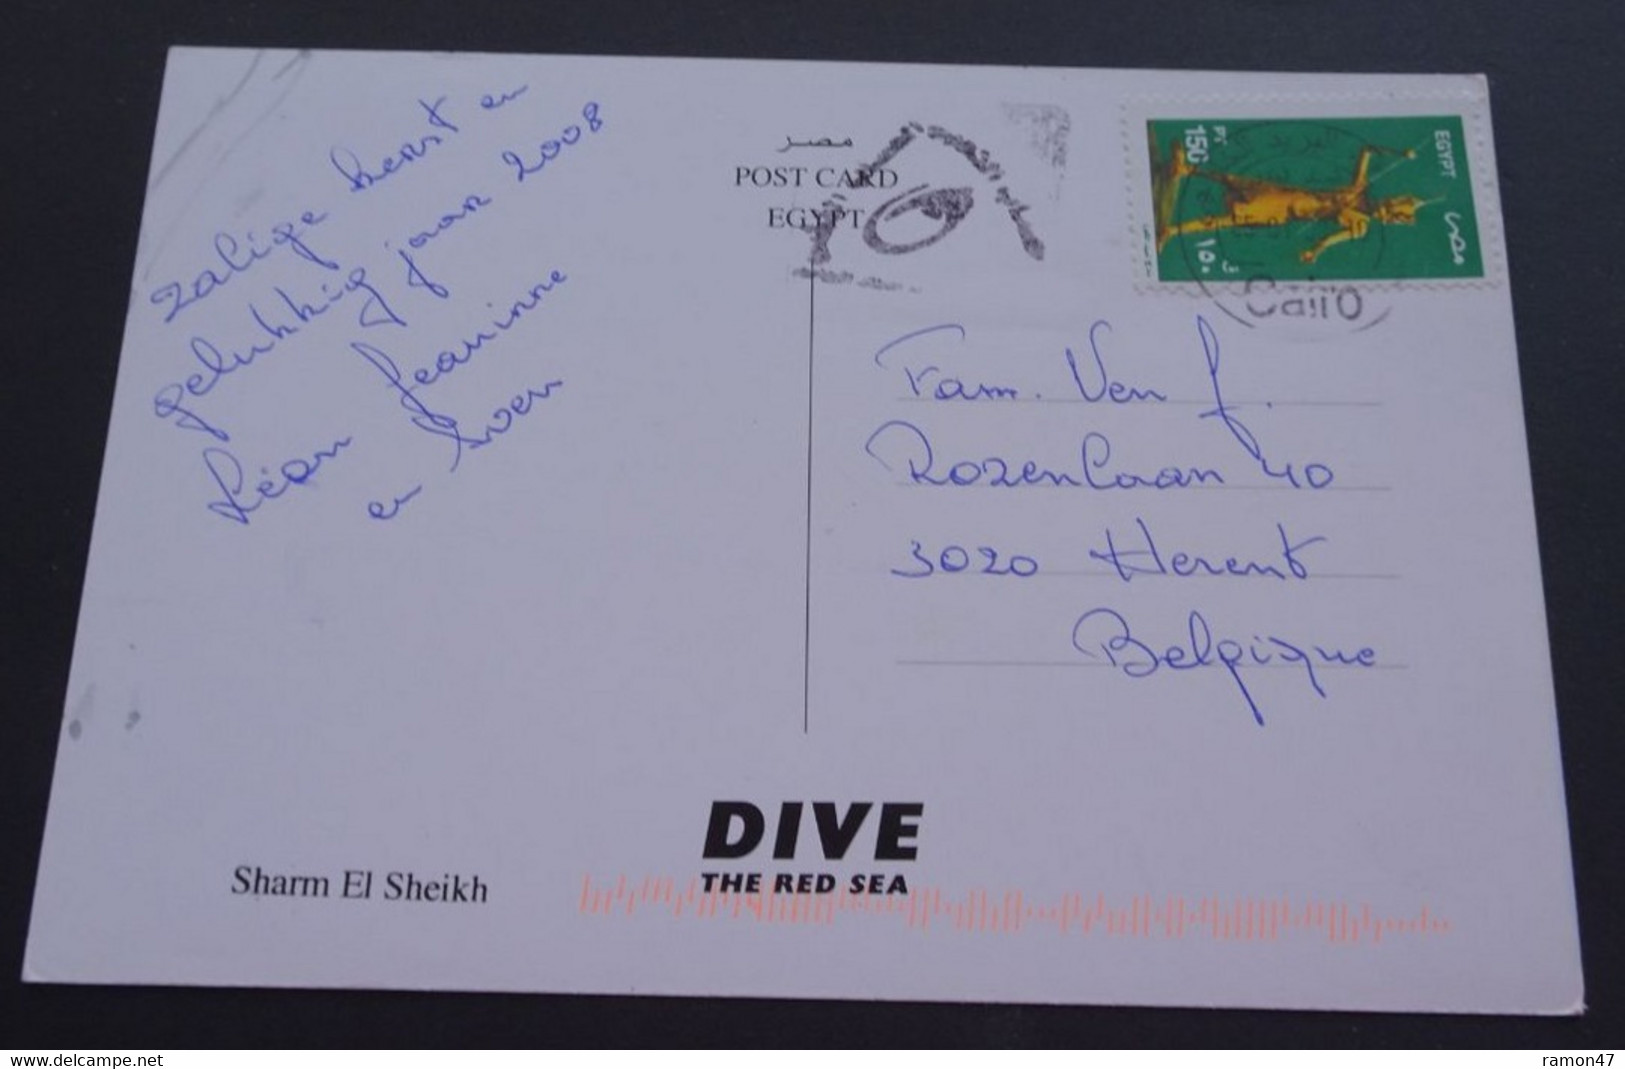 zalige kerst en
gelukkig jaar 2008
Léon Jeaninne
en Sven
مصر
POST CARD
EGYPT
EGYPT
مصر
150
١٥٠
Cairo
Fam. Ven J.
Rozenlaan 40
3020 Herent
Belgique
DIVE
THE RED SEA
Sharm El Sheikh
www.delcampe.net
ramon47